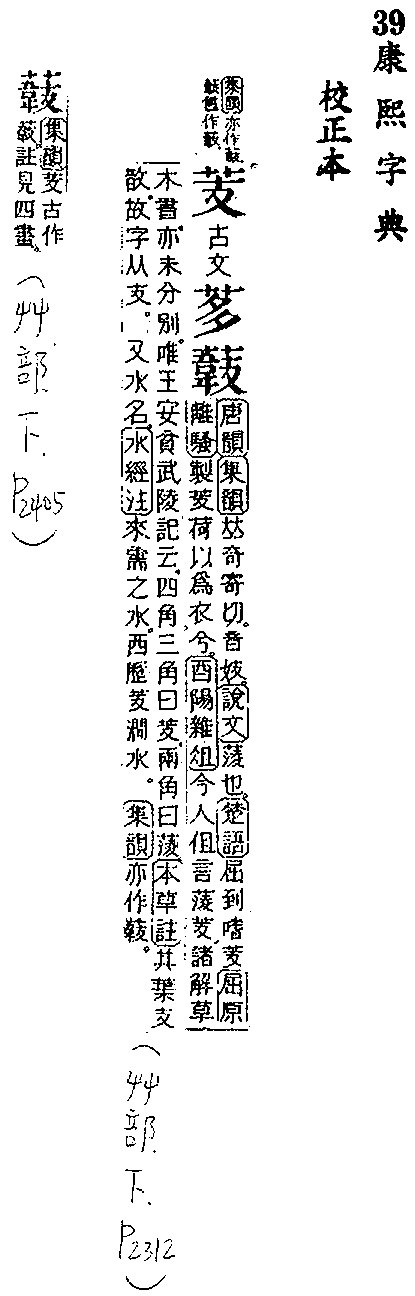 39 康熙字典
校正本
芰 古文 茤 𦽊 唐韻集韻𠀤奇寄切音妓說文蔆也楚語屈到嗜芰屈原
離騷製芰荷以爲衣兮酉陽雜俎今人但言蔆芰諸解草
木書亦未分別唯王安貧武陵記云四角三角曰芰兩角曰蔆本草註其葉支
散故字从支。又水名水經注來需之水西歷芰澗水。集韻亦作
(艸部下.P2312)
集韻芰古作
註見四畫
(艸部下.P2405)